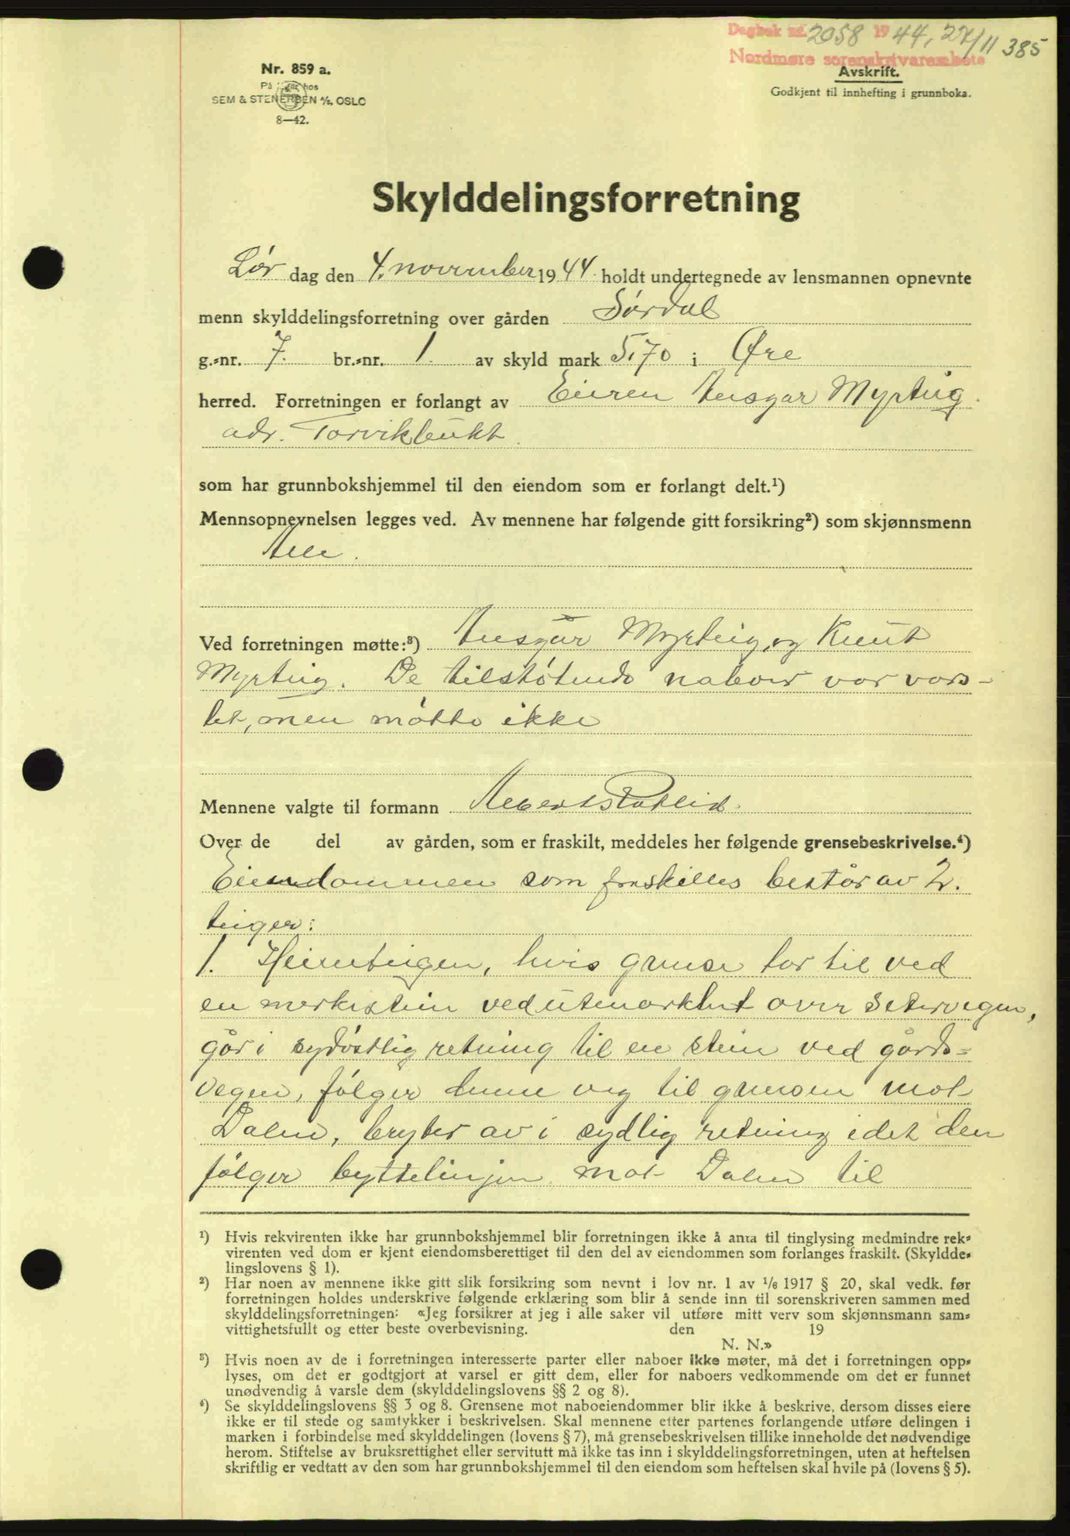 Dagbok nr. 2058 1944, 27/11 385
Nordmøre sorenskrivarembete
Nr. 859 a.
På lager hos
SEM & STENERSEN A/S, OSLO
8—42.
Avskrift.
Godkjent til innhefting i grunnboka.
Skylddelingsforretning
Lør dag den 4. november 1944 holdt undertegnede av lensmannen opnevnte
menn skylddelingsforretning over gården Sørdal
g.-nr. 7. br.-nr. 1. av skyld mark 5,70 i Øre
herred. Forretningen er forlangt av Eieren Ansgar Myrtrig
adr. Torvikbukt.
som har grunnbokshjemmel til den eiendom som er forlangt delt.¹)
Mennsopnevnelsen legges ved. Av mennene har følgende gitt forsikring²) som skjønnsmenn
Alle.
Ved forretningen møtte:³) Ansgar og Knut
De tilstøtende naboer var vars-
let, men møtte ikke
Mennene valgte til formann
Over de del av gården, som er fraskilt, meddeles her følgende grensebeskrivelse.⁴)
Eiendommen som fraskilles består av 2.
teiger:
1. Heimteigen, hvis grense tar til ved
en merkestein ved utmarksled over setervegen,
går i sydøstlig retning til en stein ved gårds-
vegen, følger denne veg til grensen mot
Dalen, bryter av i sydlig retning idet den
følger byttelinjen mot Dalen til
¹) Hvis rekvirenten ikke har grunnbokshjemmel blir forretningen ikke å anta til tinglysing medmindre rek-
virenten ved dom er kjent eiendomsberettiget til den del av eiendommen som forlanges fraskilt. (Skyldde-
lingslovens § 1).
²) Har noen av mennene ikke gitt slik forsikring som nevnt i lov nr. 1 av 1/6 1917 § 20, skal vedk. før
forretningen holdes underskrive følgende erklæring som blir å sende inn til sorenskriveren sammen med
skylddelingsforretningen: «Jeg forsikrer at jeg i alle saker vil utføre mitt verv som skjønnsmann sam-
vittighetsfullt og etter beste overbevisning. den 19
N. N.»
³) Hvis noen av de i forretningen interesserte parter eller naboer ikke møter, må det i forretningen opp-
lyses, om det er godtgjort at varsel er gitt dem, eller for naboers vedkommende om det er funnet
unødvendig å varsle dem (skylddelingslovens §§ 2 og 8).
⁴) Se skylddelingslovens §§ 3 og 8. Grensene mot naboeiendommer blir ikke å beskrive, dersom disses eiere
ikke er til stede og samtykker i beskrivelsen. Skal mennene etter partenes forlangende utføre delingen i
marken i forbindelse med skylddelingen (lovens § 7), må grensebeskrivelsen tillike inneholde det nødvendige
herom. Stiftelse av bruksrettighet eller servitutt må ikke tas inn i skylddelingsforretningen, uten at heftelsen
skriftlig er vedtatt av den som har grunnbokshjemmel til den eiendom som heftelsen skal hvile på (lovens § 5).